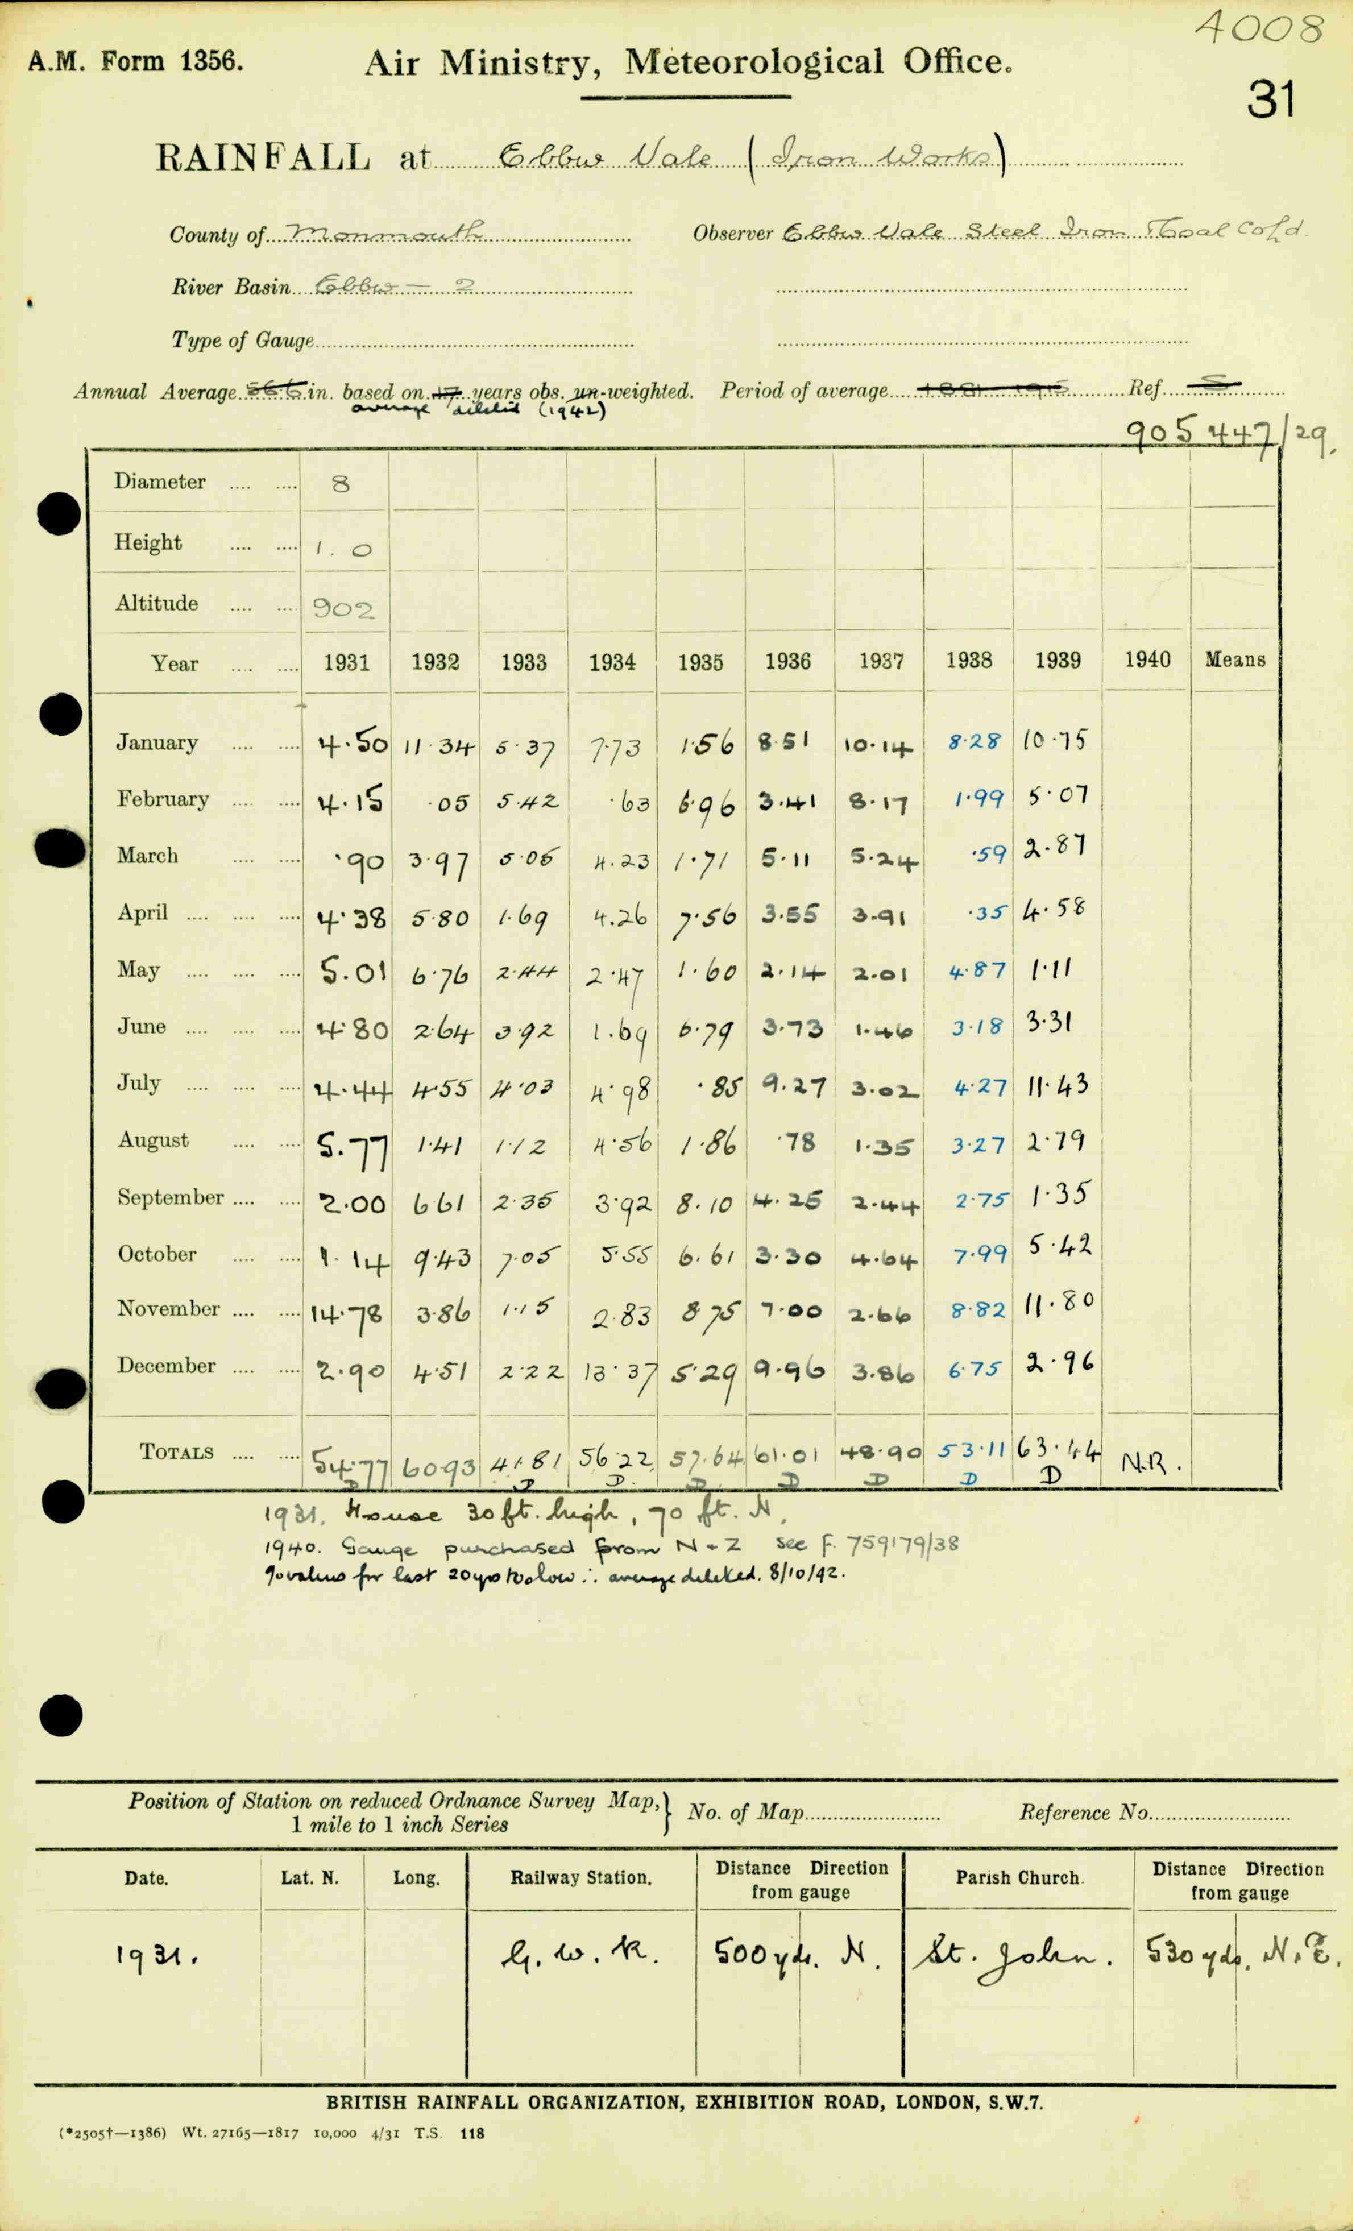 4008
A.M. Form 1356. Air Ministry, Meteorological Office.
31
RAINFALL at Ebbw Vale (Iron Works)
County of Monmouth Observer Ebbw Vale Steel Iron & Coal Co Ld.
River Basin Ebbw — 2
Type of Gauge
Annual Average 56.6 in. based on 17 years obs. un-weighted. Period of average 1881 1915 Ref. S
average deleted (1942)
905447/29.
Diameter .... .... 8
Height .... .... 1.0
Altitude .... .... 902
Year .... .... 1931 1932 1933 1934 1935 1936 1937 1938 1939 1940 Means
January .... .... 4.50 11.34 5.37 7.73 1.56 8.51 10.14 8.28 10.75
February .... .... 4.15 .05 5.42 .63 6.96 3.41 8.17 1.99 5.07
March .... .... .90 3.97 5.05 4.23 1.71 5.11 5.24 .59 2.87
April .... .... .... 4.38 5.80 1.69 4.26 7.56 3.55 3.91 .35 4.58
May .... .... .... 5.01 6.76 2.44 2.47 1.60 2.14 2.01 4.87 1.11
June .... .... .... 4.80 2.64 3.92 1.69 6.79 3.73 1.46 3.18 3.31
July .... .... .... 4.44 4.55 4.03 4.98 .85 9.27 3.02 4.27 11.43
August .... .... 5.77 1.41 1.12 4.56 1.86 .78 1.35 3.27 2.79
September .... .... 2.00 6.61 2.35 3.92 8.10 4.25 2.44 2.75 1.35
October .... .... 1.14 9.43 7.05 5.55 6.61 3.30 4.64 7.99 5.42
November .... .... 14.78 3.86 1.15 2.83 8.75 7.00 2.66 8.82 11.80
December .... .... 2.90 4.51 2.22 13.37 5.29 9.96 3.86 6.75 2.96
TOTALS .... .... 54.77 60.93 41.81 56.22 57.64 61.01 48.90 53.11 63.44 N.R.
D D D D D D D D
1931. House 30 ft. high, 70 ft. N.
1940. Gauge purchased from N - Z see F. 759179/38
% values for last 20 yrs too low ∴ average deleted. 8/10/42.
Position of Station on reduced Ordnance Survey Map,} No. of Map Reference No.
1 mile to 1 inch Series
Date. Lat. N. Long. Railway Station. Distance Direction from gauge Parish Church. Distance Direction from gauge
1931. G. W. R. 500 yds. N. St. John. 530 yds. N.E.
BRITISH RAINFALL ORGANIZATION, EXHIBITION ROAD, LONDON, S.W.7.
(*2505†—1386) Wt. 27165—1817 10,000 4/31 T.S. 118